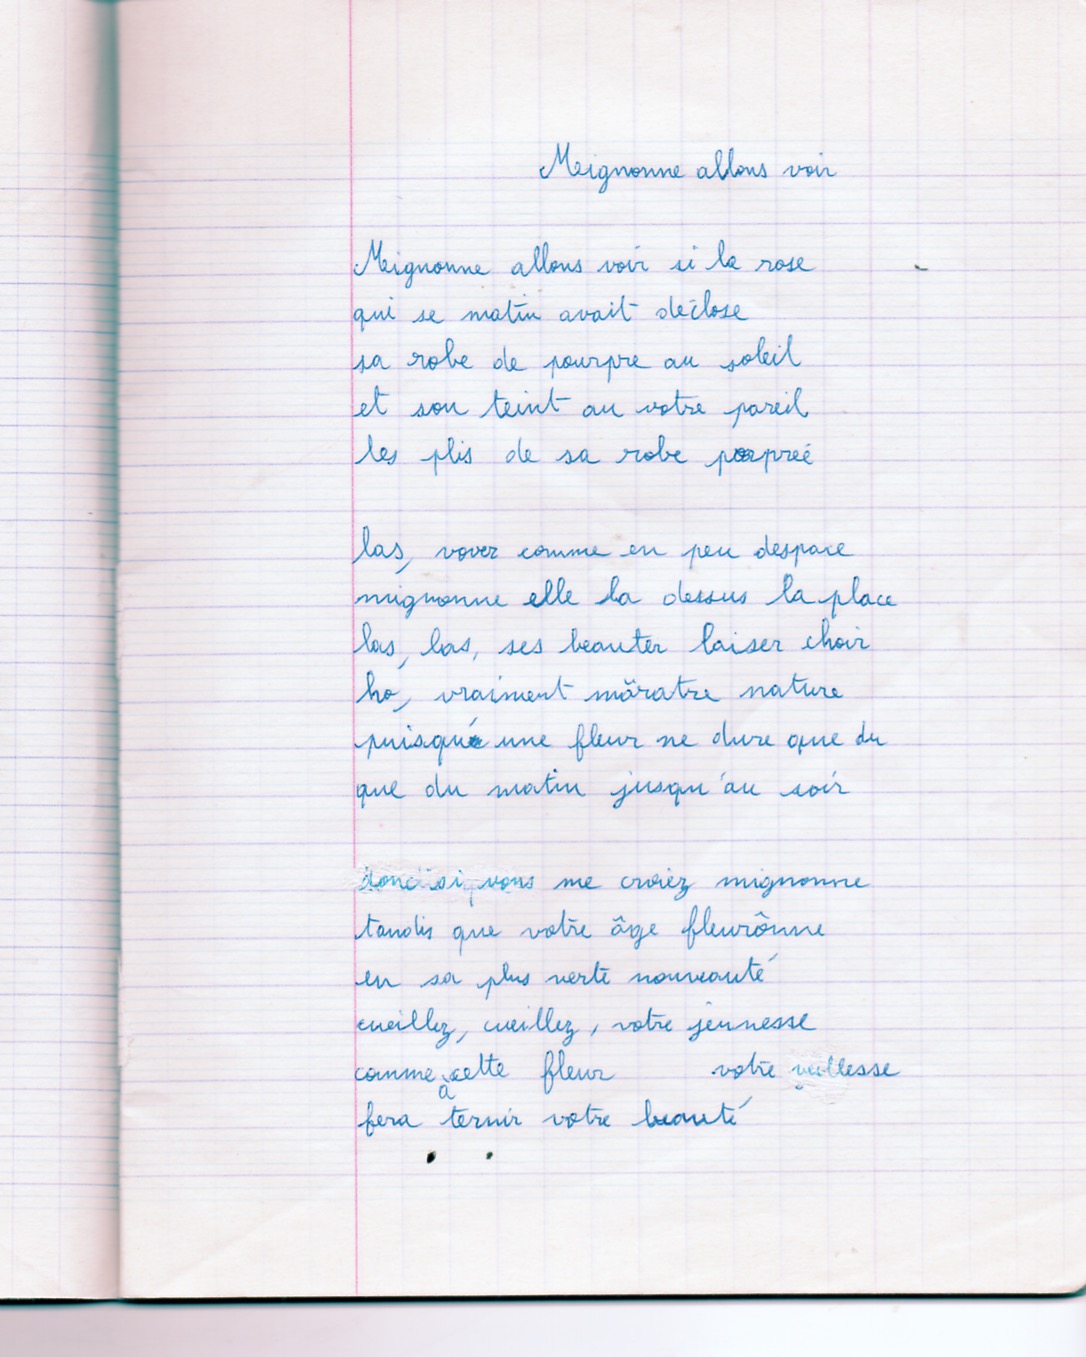 Meignonne allons voir
Meignonne allons voir si la rose
qui se matin avait déclose
sa robe de pourpre au soleil
et son teint au votre pareil
les plis de sa robe porpreé
las, vover comme en peu despace
mignonne elle la dessus la place
las, las, ses beauter laiser choir
ho, vraiment mâratre nature
puisqu'une fleur ne dure que du
que du matin jusqu'au soir
donc si vous me croiez mignonne
tandis que votre âge fleurônne
en sa plus verte nouveauté
cueillez, cueillez, votre jeunesse
comme à cette fleur votre veillesse
fera ternir votre beauté